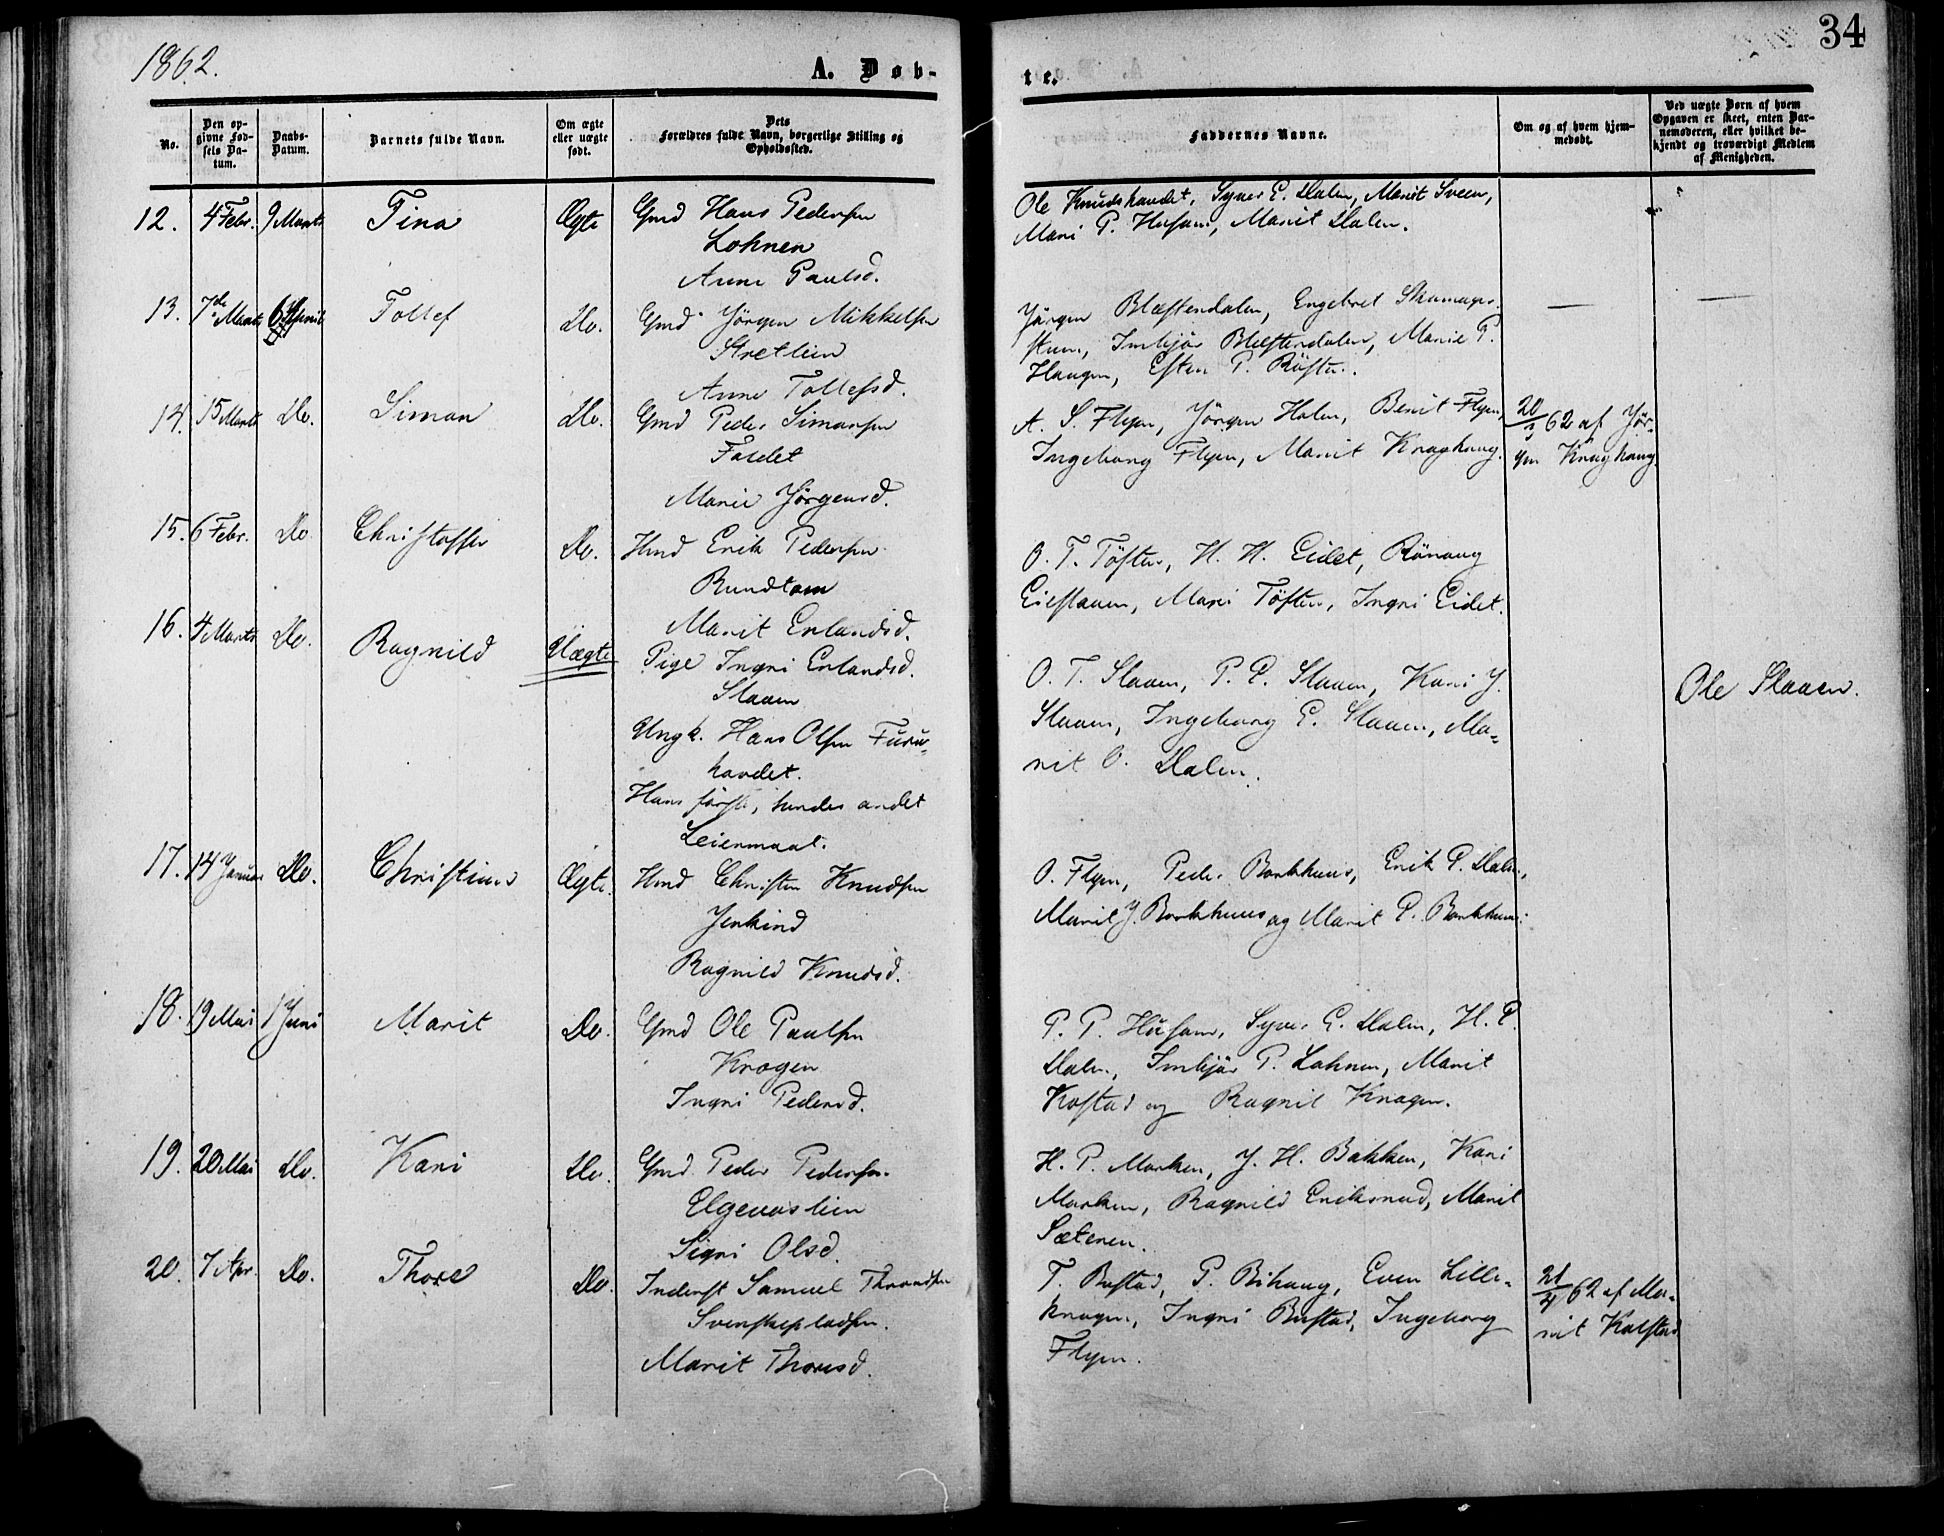 1862.
A. Døb-
te.
34
No.
Den op-
givne Fød-
sels Da-
tum.
Daabs-
Datum.
Barnets fulde Navn.
Om ægte
eller uægte
født.
Dets
Forældres fulde Navn, borgerlige Stilling og
Opholdssted.
Faddernes Navne.
Om og af hvem hjem-
medøbt.
Ved uægte Børn af hvem
Opgaven er skeet, enten Bar-
nemoderen, eller hvilket be-
kjendt og troværdigt Medlem
af Menigheden.
12. 4 Febr. 9 Marts Tina Ægte Gmd Hans Pedersen
Lohnen
Anne Paulsd.
Ole Knudshaudet, Syver E. Dalen, Marit Sveen,
Mari P. Husom, Marit Dalen.
13. 7de Marts 6 April Tollef Do. Gmd Jørgen Mikkelsen
Stretlien
Anne Tollefsd.
Jørgen Blæstendalen, Engebret
Imbjør Blæstendalen, Marie P.
Haugen, Esten P. Röften.
14. 15 Marts Do. Simon Do. Gmd Peder Simonsen
Faldet
Marie Jørgensd.
A. S. Flyen, Jörgen Holen, Berit Flyen,
Ingeborg Flyen, Marit Kraghaug.
20/3 62 af Jør-
gen Kraghaug.
15. 6 Febr. Do. Christoffer Do. Hmd Erik Pedersen
Rundtom
Marit Erlandsd.
O. T. Töften, H. H. Eidet, Rönaug
Eiestauen, Mari Töften, Ingri Eidet.
16. 4 Marts Do. Ragnild Uægte Pige Ingri Erlandsd.
Slaaen
Ungk. Hans Olsen Furu-
havdet.
Hans første, hendes andet
Leiermaal.
O. T. Slaaen, P. E. Slaaen, Kari J.
Slaaen, Ingeborg E. Slaaen, Ma-
rit O. Dalen.
Ole Slaaen.
17. 14 Januar Do. Christine Ægte. Hmd Christen Knudsen
Jenkind
Ragnild Knudsd.
O. Flyen, Peder Borkhuus, Erik P. Dalen,
Marit J. Borkhuus og Marit P. Borkhuus.
18. 19 Mai 1 Juni Marit Do. Gmd Ole Paulsen
Krogen
Ingri Pedersd.
P. P. Husom, Syver E. Dalen, H. E.
Dalen, Imbjør P. Lohnen, Marit
Kolstad og Ragnil Krogen.
19. 20 Mai Do. Kari Do. Gmd Peder Pedersen
Elgevaslien
Signi Olsd.
H. P. Morken, J. H. Bakken, Kari
Morken, Ragnild Eriksrud, Marit
Sæteren.
20. 7 Apr. Do. Thore Do. Inderst Samuel Thoresen
Svenskepladsen.
Marit Thoresd.
T. Bustad, P. Bihaug, Even Lille-
krogen, Ingri Bustad, Ingeborg
Flyen.
21/4 62 af Ma-
rit Kolstad